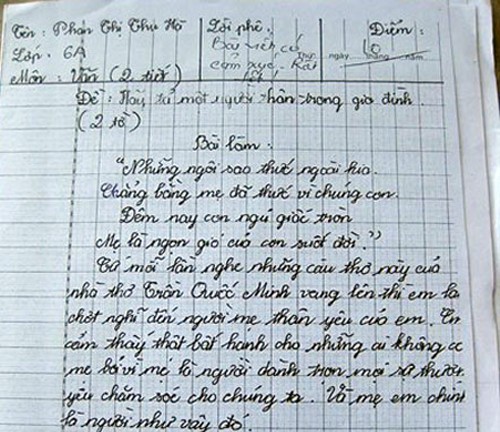 Tên : Phan Thị Thu Hà
Lời phê :
Điểm :
Lớp : 6A
Bài viết có
10
Thứ ngày tháng năm
cảm xục. Rất
Môn : Văn (2 tiết)
tốt!
Đề : Hãy tả một người thân trong gia đình.
(2 tờ)
Bài làm :
"Những ngôi sao thức ngoài kia.
Chẳng bằng mẹ đã thức vì chúng con.
Đêm nay con ngủ giấc tròn
Mẹ là ngọn gió của con suốt đời."
Cứ mỗi lần nghe những câu thơ này của
nhà thơ Trần Quốc Minh vang lên thì em lại
chợt nghĩ đến người mẹ thân yêu của em. Em
cảm thấy thật bất hạnh cho những ai không có
mẹ bởi vì mẹ là người dành trọn mọi sự thương
yêu chăm sóc cho chúng ta. Và mẹ em chính
là người như vậy đó.